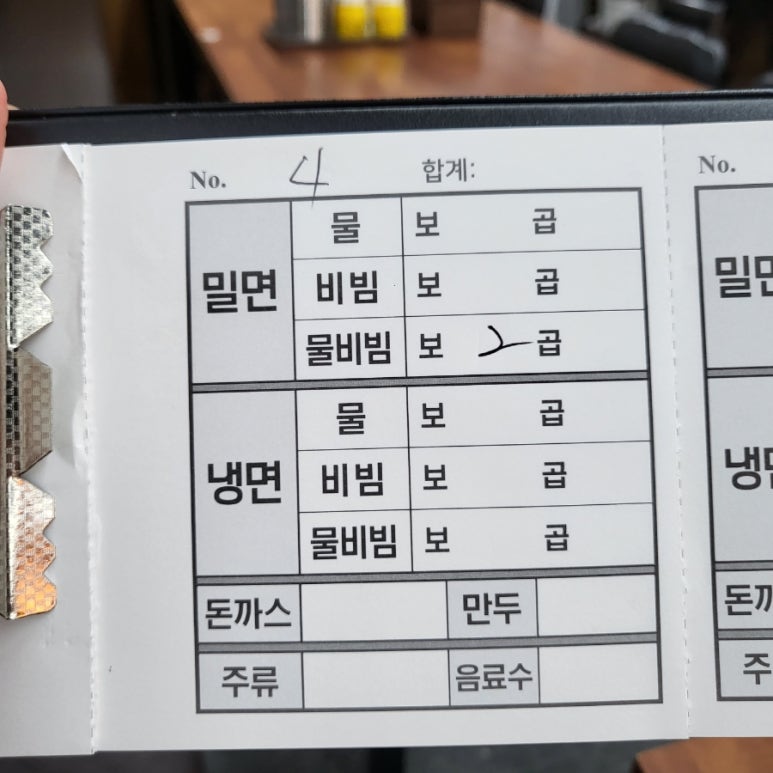 No. 4 합계:
밀면 물 보 곱
비빔 보 곱
물비빔 보 2 곱
냉면 물 보 곱
비빔 보 곱
물비빔 보 곱
돈까스 만두
주류 음료수
No.
밀면
냉면
돈까
주